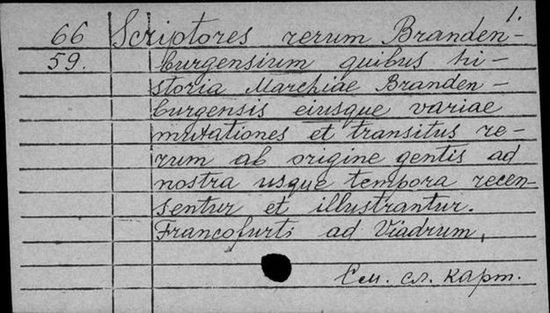 1.
66 Scriptores rerum Branden-
59. burgensium quibus hi-
storia Marchiae Branden-
burgensis eiusque variae
mutationes et transitus re-
rum ab origine gentis ad
nostra usque tempora recen-
sentur et illustrantur.
Francofurti ad Viadrum,
См. сл. карт.